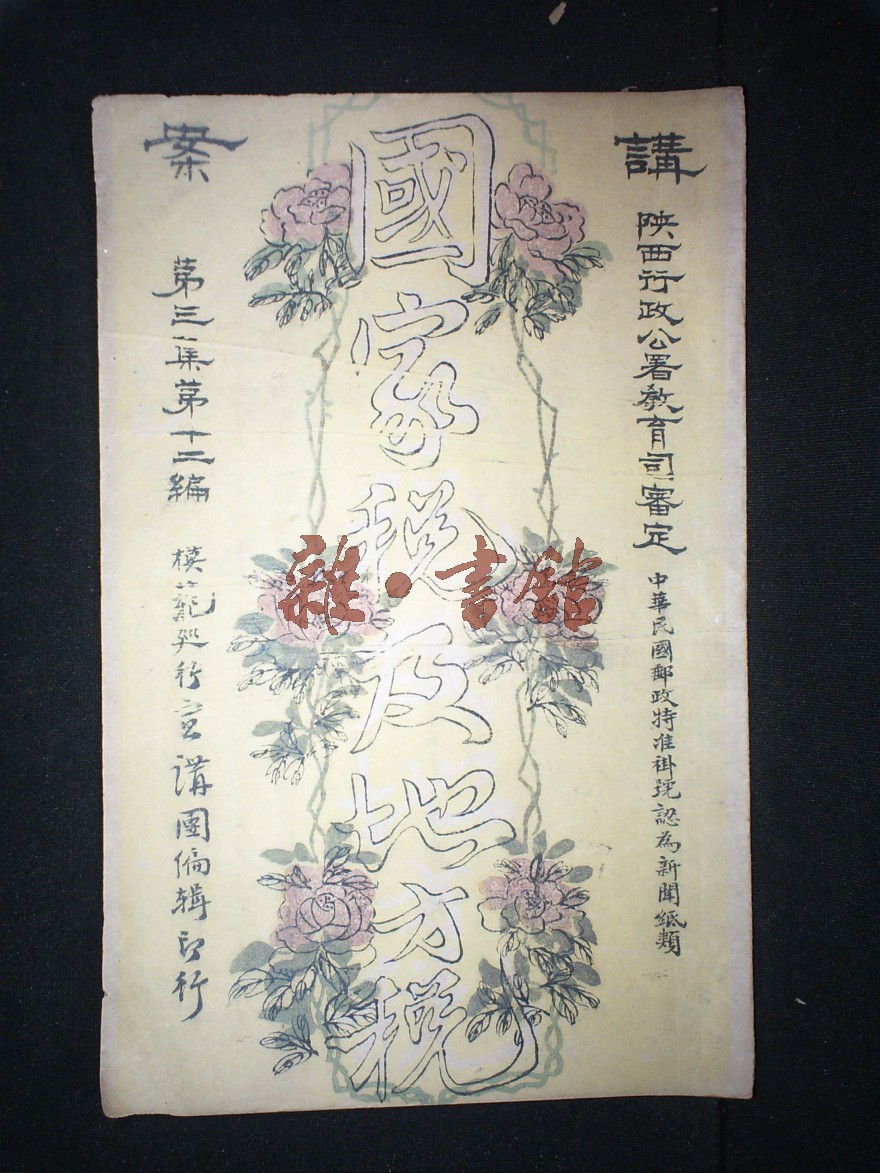 講案
陝西行政公署教育司審定
中華民國郵政特准掛號認為新聞紙類
國家稅及地方稅
第三集第十二編
模範巡行宣講團編輯印行
雜·書館